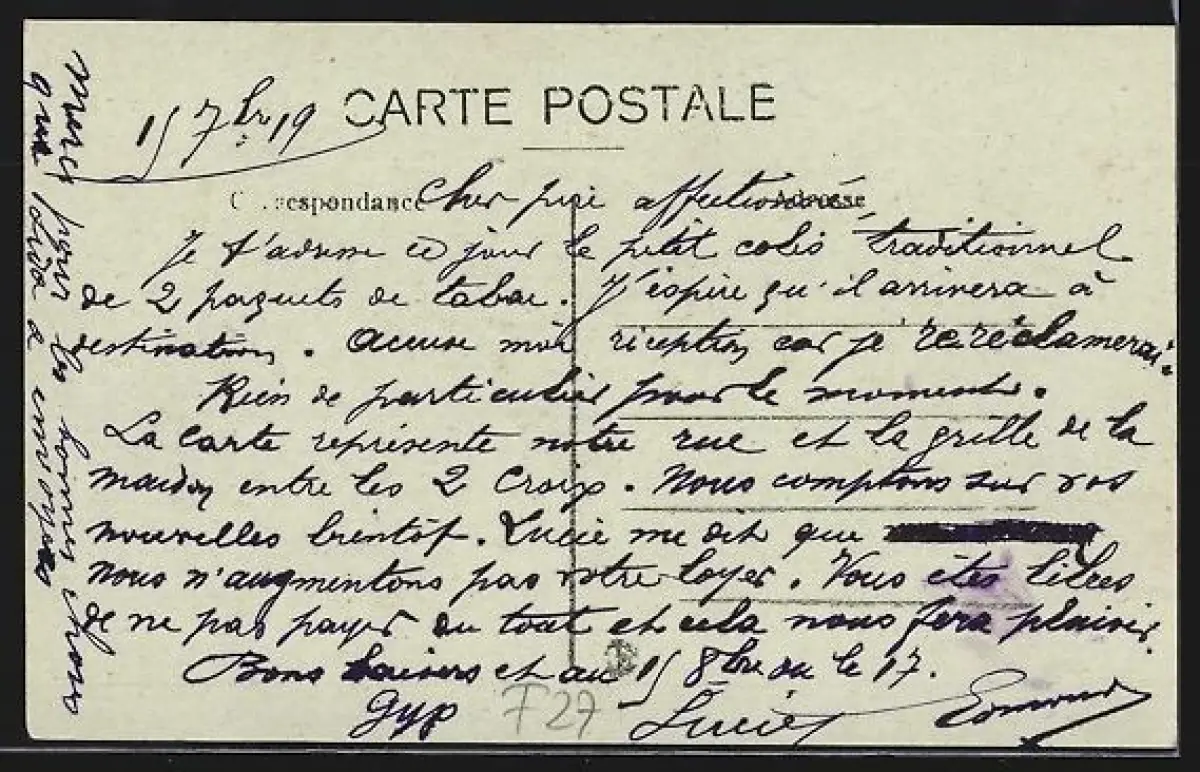 15 7bre 19
CARTE POSTALE
Correspondance
Adresse
Cher père affectionné
Je t'adresse ce jour le petit colis traditionnel
de 2 paquets de tabac. J'espère qu'il arrivera à
destination. Accuse moi réception car je réclamerai.
Rien de particulier pour le moment.
La carte représente notre rue et la grille de la
maison entre les 2 croix. Nous comptons sur vos
nouvelles bientôt. Lucie me dit que
nous n'augmentons pas votre loyer. Vous êtes libres
de ne pas payer du tout et cela nous fera plaisir.
Bons baisers et au 15 8bre ou le 17.
Gyp
Lucie
Edmond
F27
Merci pour les bonnes choses
que